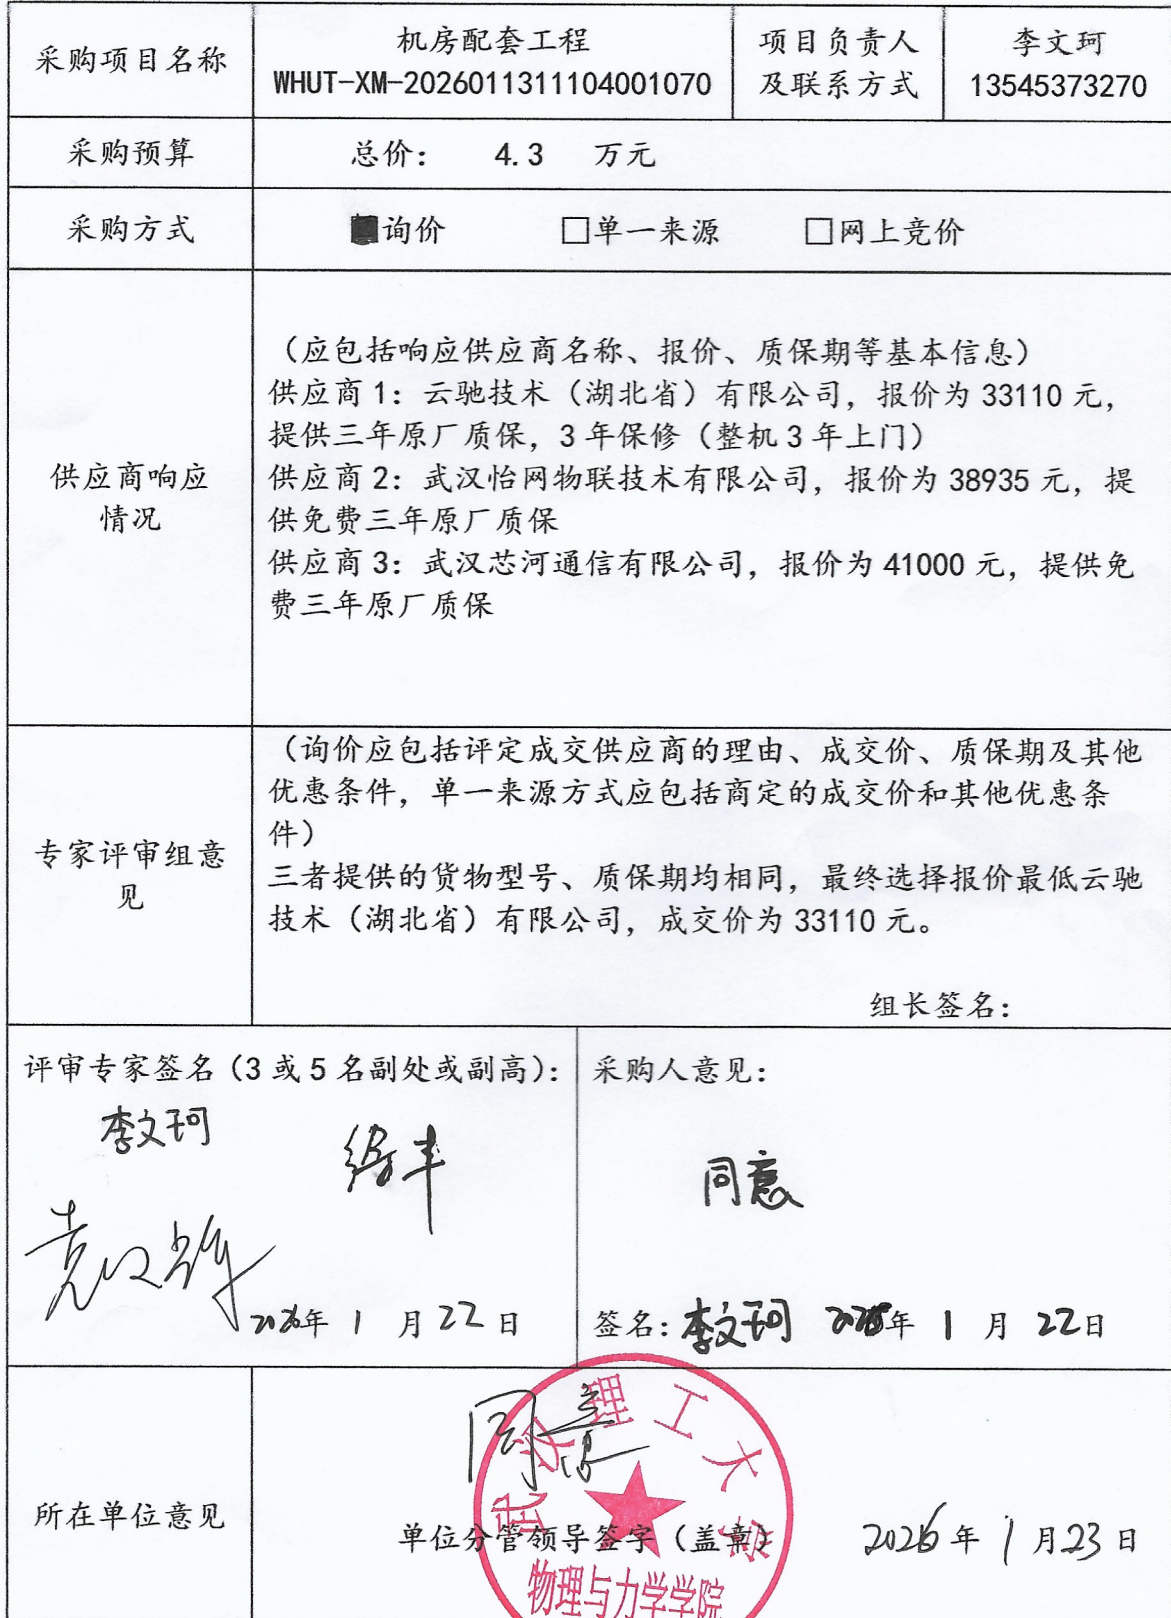 采购项目名称
机房配套工程
WHUT-XM-2026011311104001070
项目负责人
及联系方式
李文珂
13545373270
采购预算
总价： 4.3 万元
采购方式
■询价 □单一来源 □网上竞价
供应商响应
情况
（应包括响应供应商名称、报价、质保期等基本信息）
供应商1：云驰技术（湖北省）有限公司，报价为33110元，
提供三年原厂质保，3年保修（整机3年上门）
供应商2：武汉怡网物联技术有限公司，报价为38935元，提
供免费三年原厂质保
供应商3：武汉芯河通信有限公司，报价为41000元，提供免
费三年原厂质保
专家评审组意
见
（询价应包括评定成交供应商的理由、成交价、质保期及其他
优惠条件，单一来源方式应包括商定的成交价和其他优惠条
件）
三者提供的货物型号、质保期均相同，最终选择报价最低云驰
技术（湖北省）有限公司，成交价为33110元。
组长签名：
评审专家签名（3或5名副处或副高）：
李文珂
2026年 1 月 22 日
采购人意见：
同意
签名：李文珂 2026年 1 月 22日
所在单位意见
同意
武汉理工大学
单位分管领导签字（盖章）
2026年 1 月23日
物理与力学学院